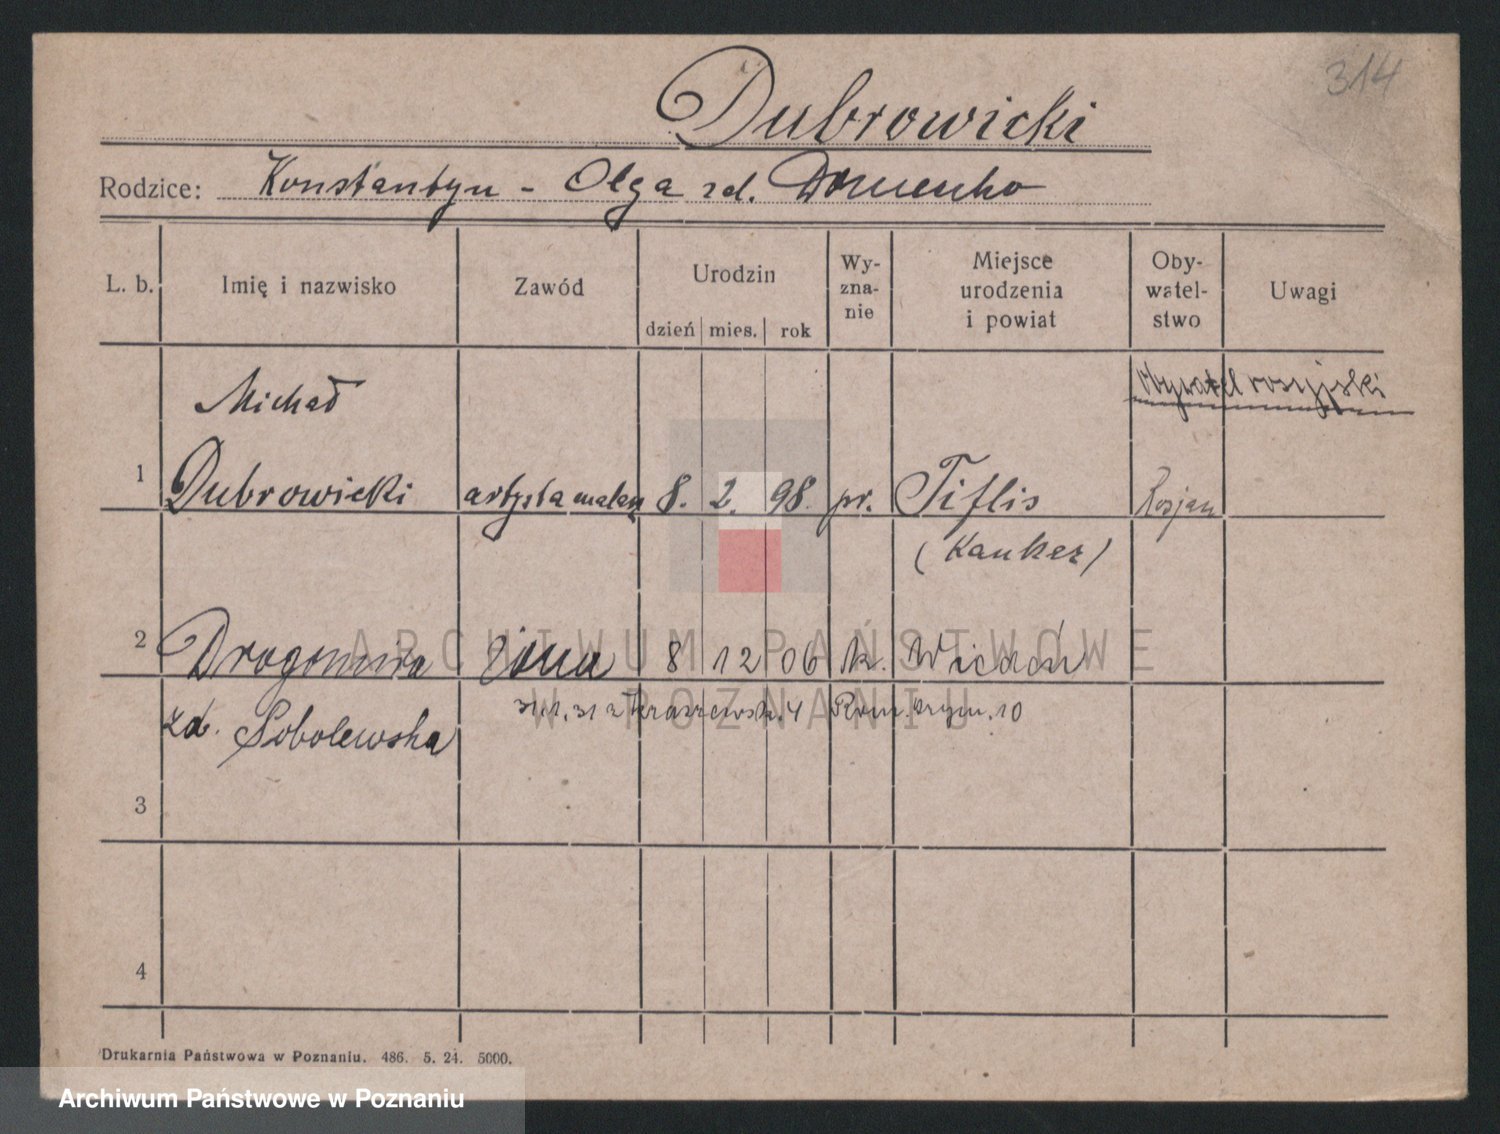 314
Dubrowicki
Rodzice: Konstantyn - Olga zd. Domenko
L. b. Imię i nazwisko Zawód Urodzin dzień mies. rok Wy- zna- nie Miejsce urodzenia i powiat Oby- watel- stwo Uwagi
Obywatel rosyjski
Michał
1 Dubrowicki artysta malarz 8. 2. 98. pr. Tiflis Rosjan
(Kaukaz)
2 żona 8 12 06 k. Wiedeń
zd. Sobolewska
31.1.31 z Kraszewsk. 4 10
3
4
ARCHIWUM PAŃSTWOWE
W POZNANIU
Drukarnia Państwowa w Poznaniu. 486. 5. 24. 5000.
Archiwum Państwowe w Poznaniu